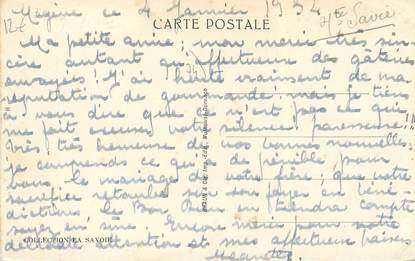 Megève ce 4 Janvier 1934
Hte Savoie
12€
CARTE POSTALE
Ma petite amie; mon merci très sin
cère autant qu'affectueux des gâteries
envoyées! J'ai honte vraiment de ma
réputation de gourmande mais je tiens
à vous dire que n'est pas ce qui
me fait excuser votre silence, paresseuse!
Très très heureuse de vos bonnes nouvelles.
je comprends ce qu'a de pénible pour
vous le mariage de votre frère; que votre
sacrifice retombe sur son foyer en béné-
dictions le Bon Dieu en tiendra compte
soyez en sûre. Encore merci pour votre
délicate attention et mes affectueux baisers
COLLECTION LA SAVOIE